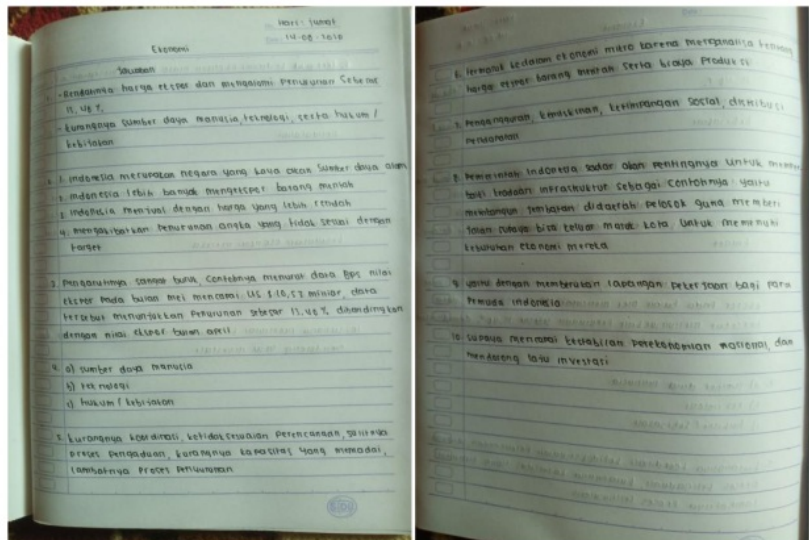 Hari : Jumat
14-08-2020
Ekonomi
Jawaban
1. - Rendahnya harga ekspor dan mengalami penurunan sebesar
13,40 %.
- kurangnya sumber daya manusia, teknologi, serta hukum /
kebijakan
2. 1. Indonesia merupakan negara yang kaya akan sumber daya alam
2. Indonesia lebih banyak mengekspor barang mentah
3. Indonesia menjual dengan harga yang lebih rendah
4. mengakibatkan penurunan angka yang tidak sesuai dengan
target
3. pengaruhnya sangat buruk, contohnya menurut data BPS nilai
ekspor pada bulan mei mencapai US $ 10,53 miliar, data
tersebut menunjukkan penurunan sebesar 13,40 % dibandingkan
dengan nilai ekspor bulan april.
4. a) sumber daya manusia
b) teknologi
c) hukum / kebijakan
5. kurangnya koordinasi, ketidaksesuaian perencanaan, sulitnya
proses pengaduan, kurangnya kapasitas yang memadai,
lambatnya proses penyusunan
6. Termasuk kedalam ekonomi mikro karena menganalisa tentang
harga ekspor barang mentah serta biaya produksi
7. Pengangguran, kemiskinan, ketimpangan sosial, distribusi
pendapatan
8. Pemerintah Indonesia sadar akan pentingnya untuk
keadaan infrastruktur sebagai contohnya yaitu
membangun jembatan didaerah pelosok guna memberi
jalan supaya bisa keluar masuk kota untuk memenuhi
kebutuhan ekonomi mereka
9. yaitu dengan memberikan lapangan pekerjaan bagi para
Pemuda indonesia
10. supaya mencapai kestabilan perekonomian nasional, dan
mendorong laju investasi